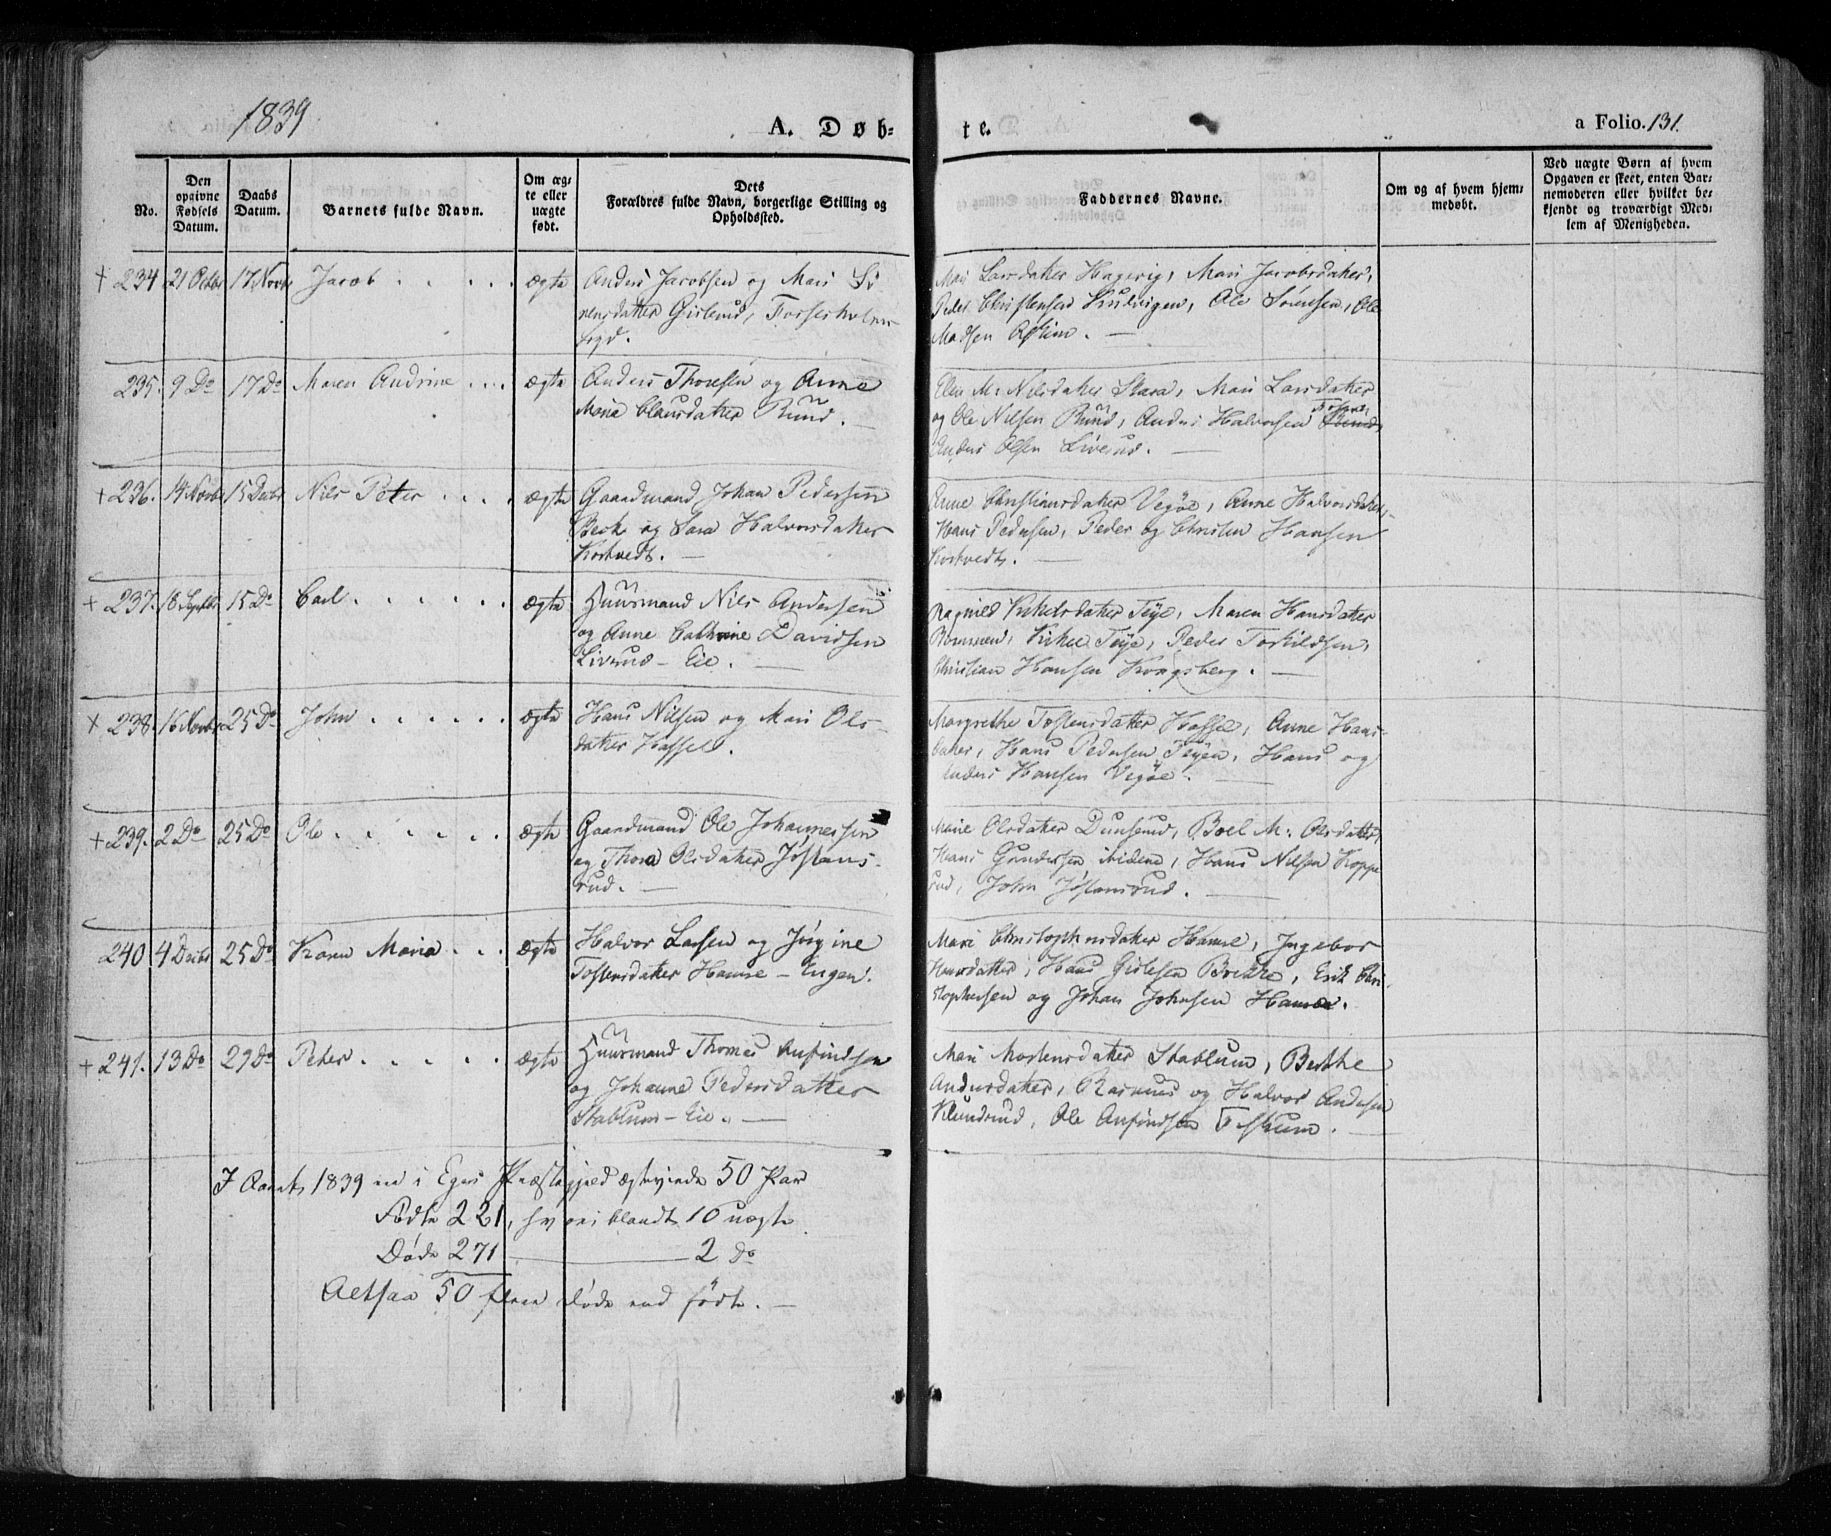 1839
A. Døb-
te.
a Folio. 131.
No.
Den opgivne Fødsels Datum.
Daabs Datum.
Barnets fulde Navn.
Om ægte eller uægte født.
Dets Forældres fulde Navn, borgerlige Stilling og Opholdssted.
Faddernes Navne.
Om og af hvem hjemmedøbt.
Ved uægte Børn af hvem Opgaven er skeet, enten Barnemoderen eller hvilket bekjendt og troværdigt Medlem af Menigheden.
+ 234 21 Octbr 17 Novbr Jacob . . . . . ægte
Anders Jacobsen og Mari Sö-
rensdatter Gislerud, Fossesholms
Mari Larsdatter Hagerig, Mari Jacobsdatter,
Peder Christensen, Ole Sörensen, Ole
Madsen Askim. —
235. 9 Do 17 Do Maren Andrine . . . ægte
Anders Thoresen og Anne
Maria Clausdatter Rund. —
Elen M. Nilsdatter Skara, Mari Larsdatter
og Ole Nilsen Rund, Anders Halvorsen
Anders Olsen Liverud. —
+ 236. 14 Novbr 15 Decbr Nils Peter . . . . ægte
Gaardmand Johan Pedersen
Beck og Sara Halvorsdatter
Kortvedt. —
Anne Christiansdatter Vegöe, Anne Halvorsdatter,
Hans Pedersen, Peder og Christen Hansen
Kortvedt. —
+ 237. 18 Septbr 15 Do Carl . . . . . . ægte
Huusmand Nils Andersen
og Anne Cathrine Davidsen
Liverud – Eie. —
Ragnild Kirkelsdatter Teye, Maren Hansdatter
Kirkel Teye, Peder Torkildsen,
Christian Hansen Kongsberg. —
+ 238. 16 Novbr 25 Do John . . . . . . ægte
Hans Nilsen og Mari Ols-
datter Hassel.
Margrethe Tostensdatter Hassel, Anne Hans-
datter, Hans Pedersen Teyen, Hans og
Anders Hansen Vegöe.
+ 239. 2 Do 25 Do Ole . . . . . . ægte
Gaardmand Ole Johannessen
og Thora Olsdatter Jöstans-
rud. —
Marie Olsdatter Dunserud, Boel M. Olsdatter,
Hans Gundersen ibidem, Hans Nilsen Koppe
rud, John Jöstansrud. —
240 4 Decbr 25 Do Karen Maria . . . ægte
Halvor Larsen og Jörgine
Tostensdatter Hamre – Engen.
Mari Christophersdatter Hamre, Ingebor
Hansdatter, Hans Gislesen Brekke, Erik Chri
stophersen og Johan Johnsen Hamre.
+ 241. 13 Do 29 Do Peter . . . . . ægte
Huusmand Thomas Anfindsen
og Johanne Pedersdatter
Stablum – Eie. —
Mari Mortensdatter Stablum, Berthe
Andersdatter, Rasmus og Halvor Andersen
Klundrud, Ole Anfindsen Foskum. —
I Aaret 1839 ere i Eger Præstegjeld ægteviede 50 Par
Födte 221, hvoriblandt 10 uægte.
Döde 271 — 2 do
Altsaa 50 flere döde end födte. —